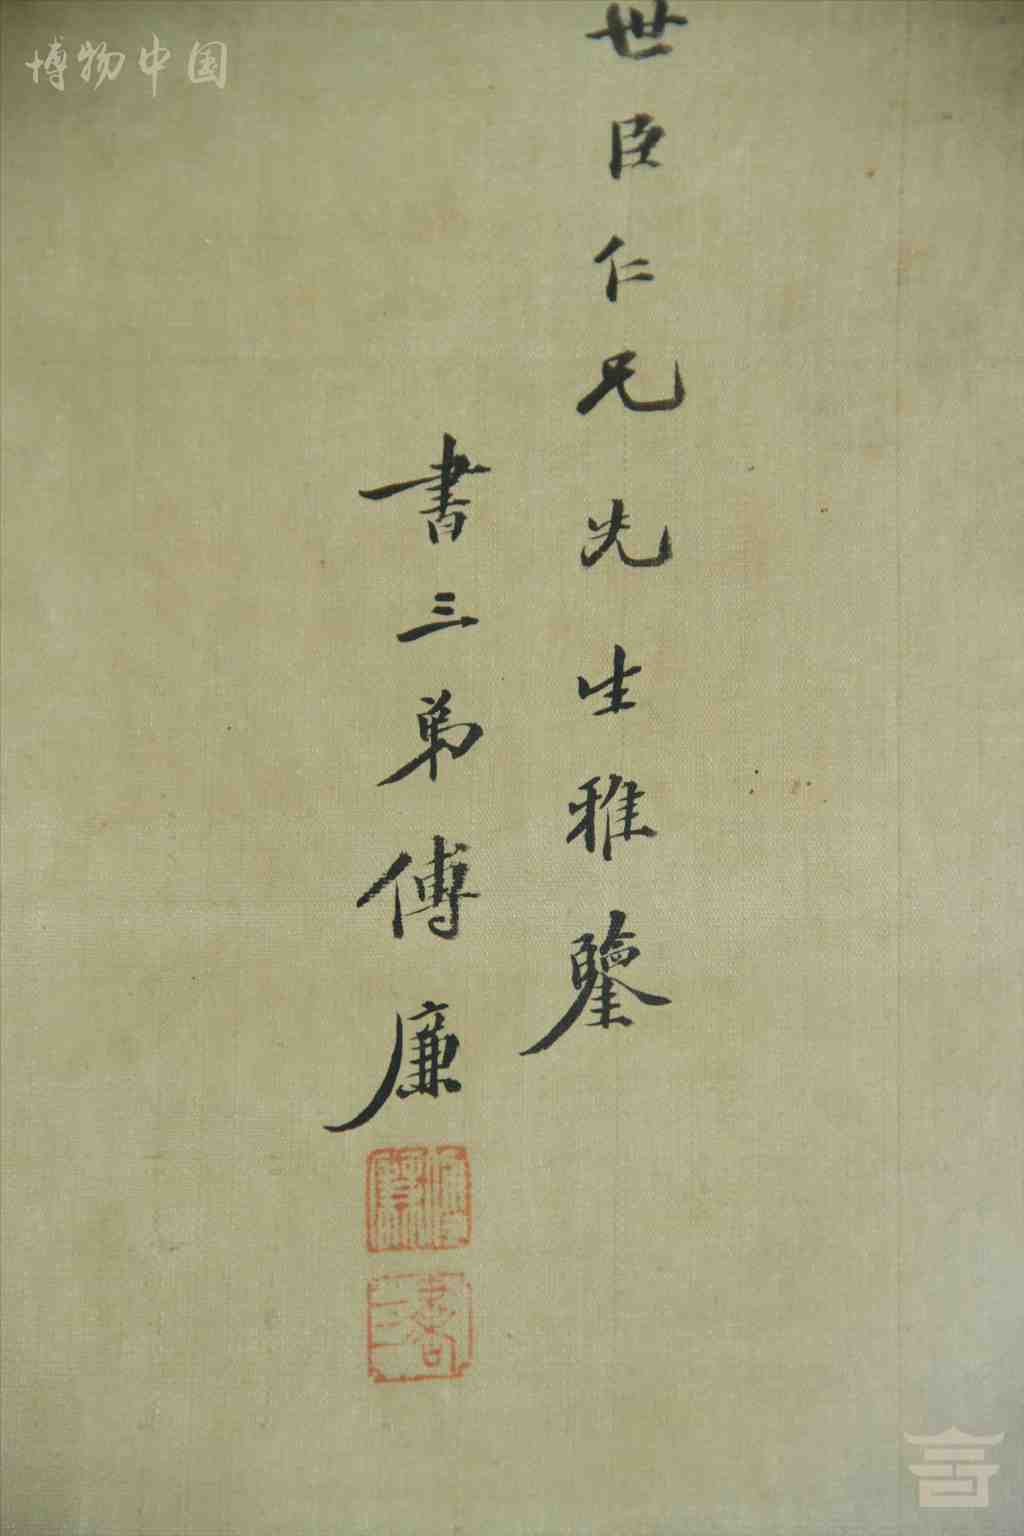 博物中国
世臣仁兄先生雅鑒
書三弟傅廉
書三